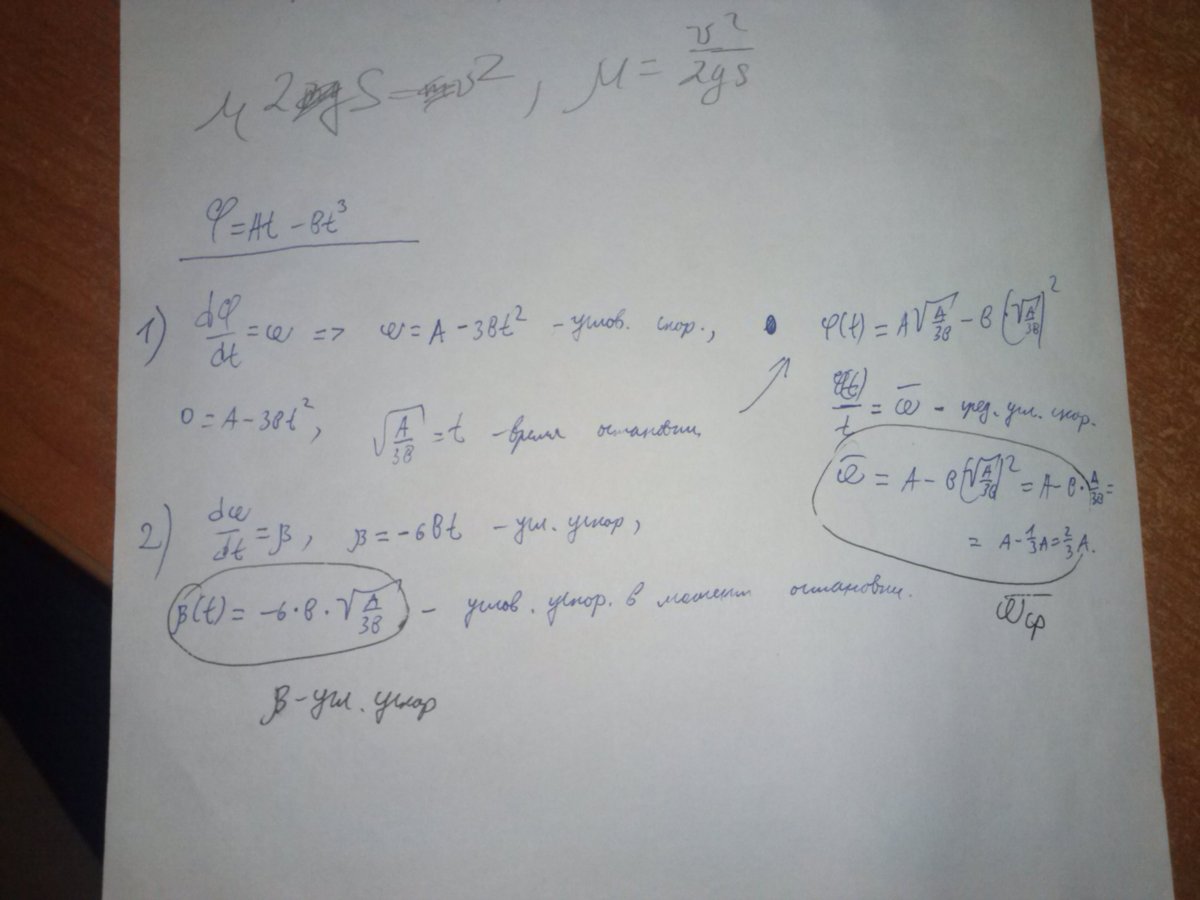 μ2gS = v², μ = v²/2gs
φ = At − Bt³
1) dφ/dt = ω => ω = A − 3Bt² – углов. скор.,
0 = A − 3Bt², √(A/3B) = t – время остановки.
φ(t) = A√(A/3B) − B(√(A/3B))²
φ(t)/t = ω̅ – сред. угл. скор.
ω̅ = A − B(√(A/3B))² = A − B·A/3B =
= A − 1/3A = 2/3A.
ω̅ср
2) dω/dt = β, β = −6Bt – угл. ускор,
β(t) = −6·B·√(A/3B) – углов. ускор. в момент остановки.
β – угл. ускор